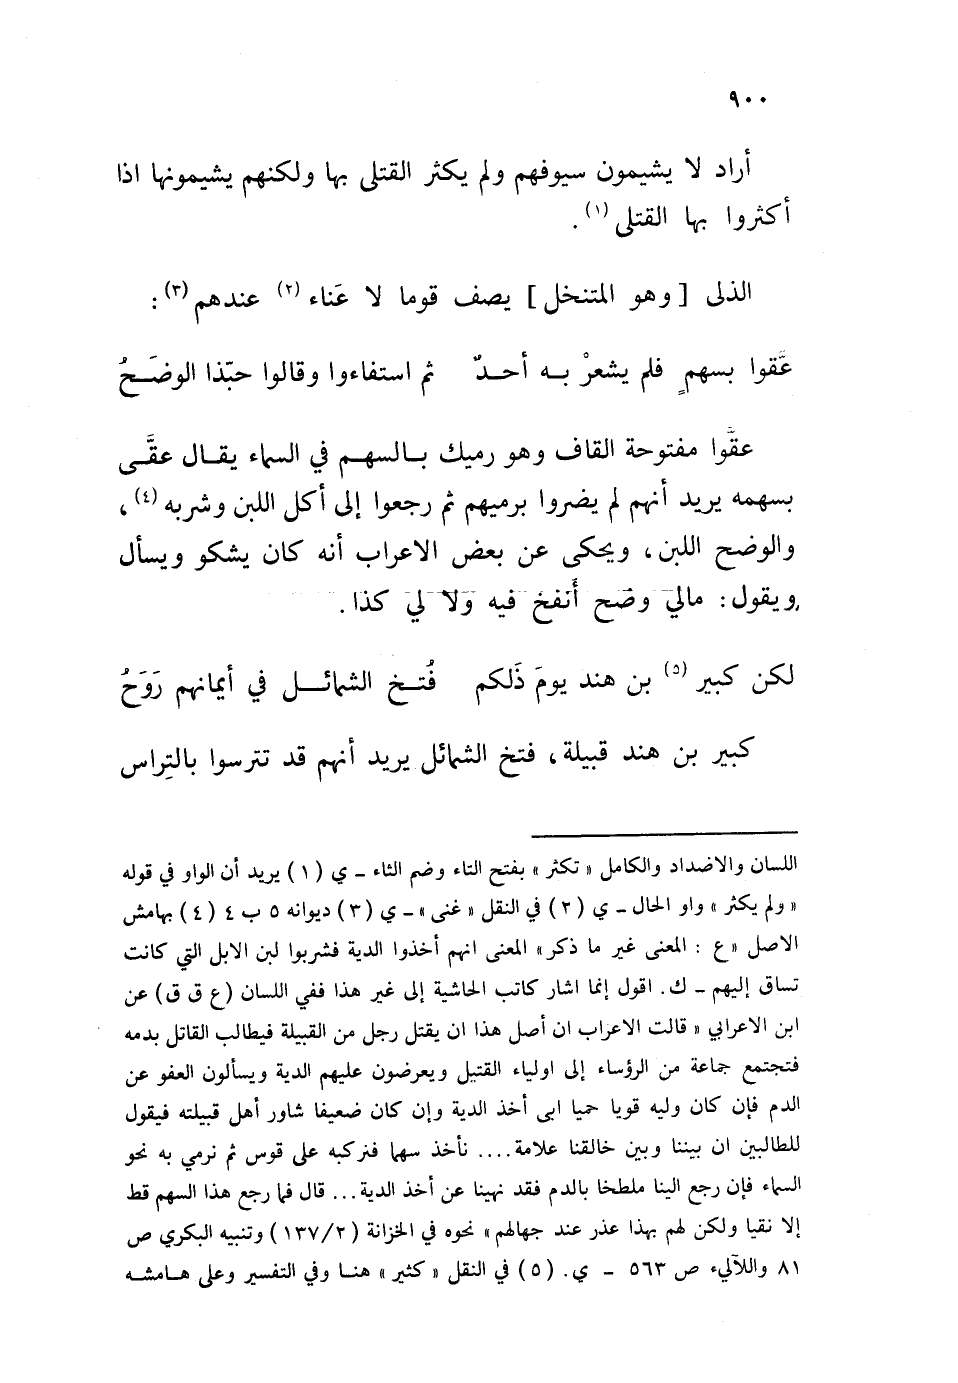 ٩٠٠
أراد لا يشيمون سيوفهم ولم يكثر القتلى بها ولكنهم يشيمونها اذا
أكثروا بها القتلى (١) .
الذلى [ وهو المتنخل ] يصف قوما لا عَناء (٢) عندهم (٣) :
عقَّوا بسهمٍ فلم يشعرْ بـه أحـدٌ ثم استفاءوا وقالوا حبّذا الوضَـحُ
عقَّوا مفتوحة القاف وهو رميك بـالسهـم في السماء يقـال عقَّـى
بسهمه يريد أنهم لم يضروا برميهم ثم رجعوا إلى أكل اللبن وشربه (٤) ،
والوضح اللبن، ويحكى عن بعض الاعراب أنه كان يشكو ويسأل
ويقول: مالي وضح أنفخ فيه ولا لي كذا .
لكن كبير (٥) بن هند يومَ ذَلكم فُتـخ الشمائـل في أيمانهم رَوَحُ
كبير بن هند قبيلة، فتخ الشمائل يريد أنهم قد تترسوا بالتِراس
اللسان والاضداد والكامل « تكثر » بفتح التاء وضم الثاء ـ ي (١) يريد أن الواو في قوله
« ولم يكثر » واو الحال ـ ي (٢) في النقل « غنى » ـ ي (٣) ديوانه ٥ ب ٤ (٤) بهامش
الاصل « ع : المعنى غير ما ذكر » المعنى انهم أخذوا الدية فشربوا لبن الابل التي كانت
تساق إليهم ـ ك. اقول إنما اشار كاتب الحاشية إلى غير هذا ففي اللسان (ع ق ق) عن
ابن الاعرابي « قالت الاعراب ان أصل هذا ان يقتل رجل من القبيلة فيطالب القاتل بدمه
فتجتمع جماعة من الرؤساء إلى اولياء القتيل ويعرضون عليهم الدية ويسألون العفو عن
الدم فإن كان وليه قويا حميا ابى أخذ الدية وإن كان ضعيفا شاور أهل قبيلته فيقول
للطالبين ان بيننا وبين خالقنا علامة .... نأخذ سهما فنركبه على قوس ثم نرمي به نحو
السماء فإن رجع الينا ملطخا بالدم فقد نهينا عن أخذ الدية ... قال فما رجع هذا السهم قط
إلا نقيا ولكن لهم بهذا عذر عند جهالهم » نحوه في الخزانة (١٣٧/٢) وتنبيه البكري ص
٨١ واللآلىء ص ٥٦٣ ـ ي. (٥) في النقل « كثير » هنـا وفي التفسير وعلى هـامشـه